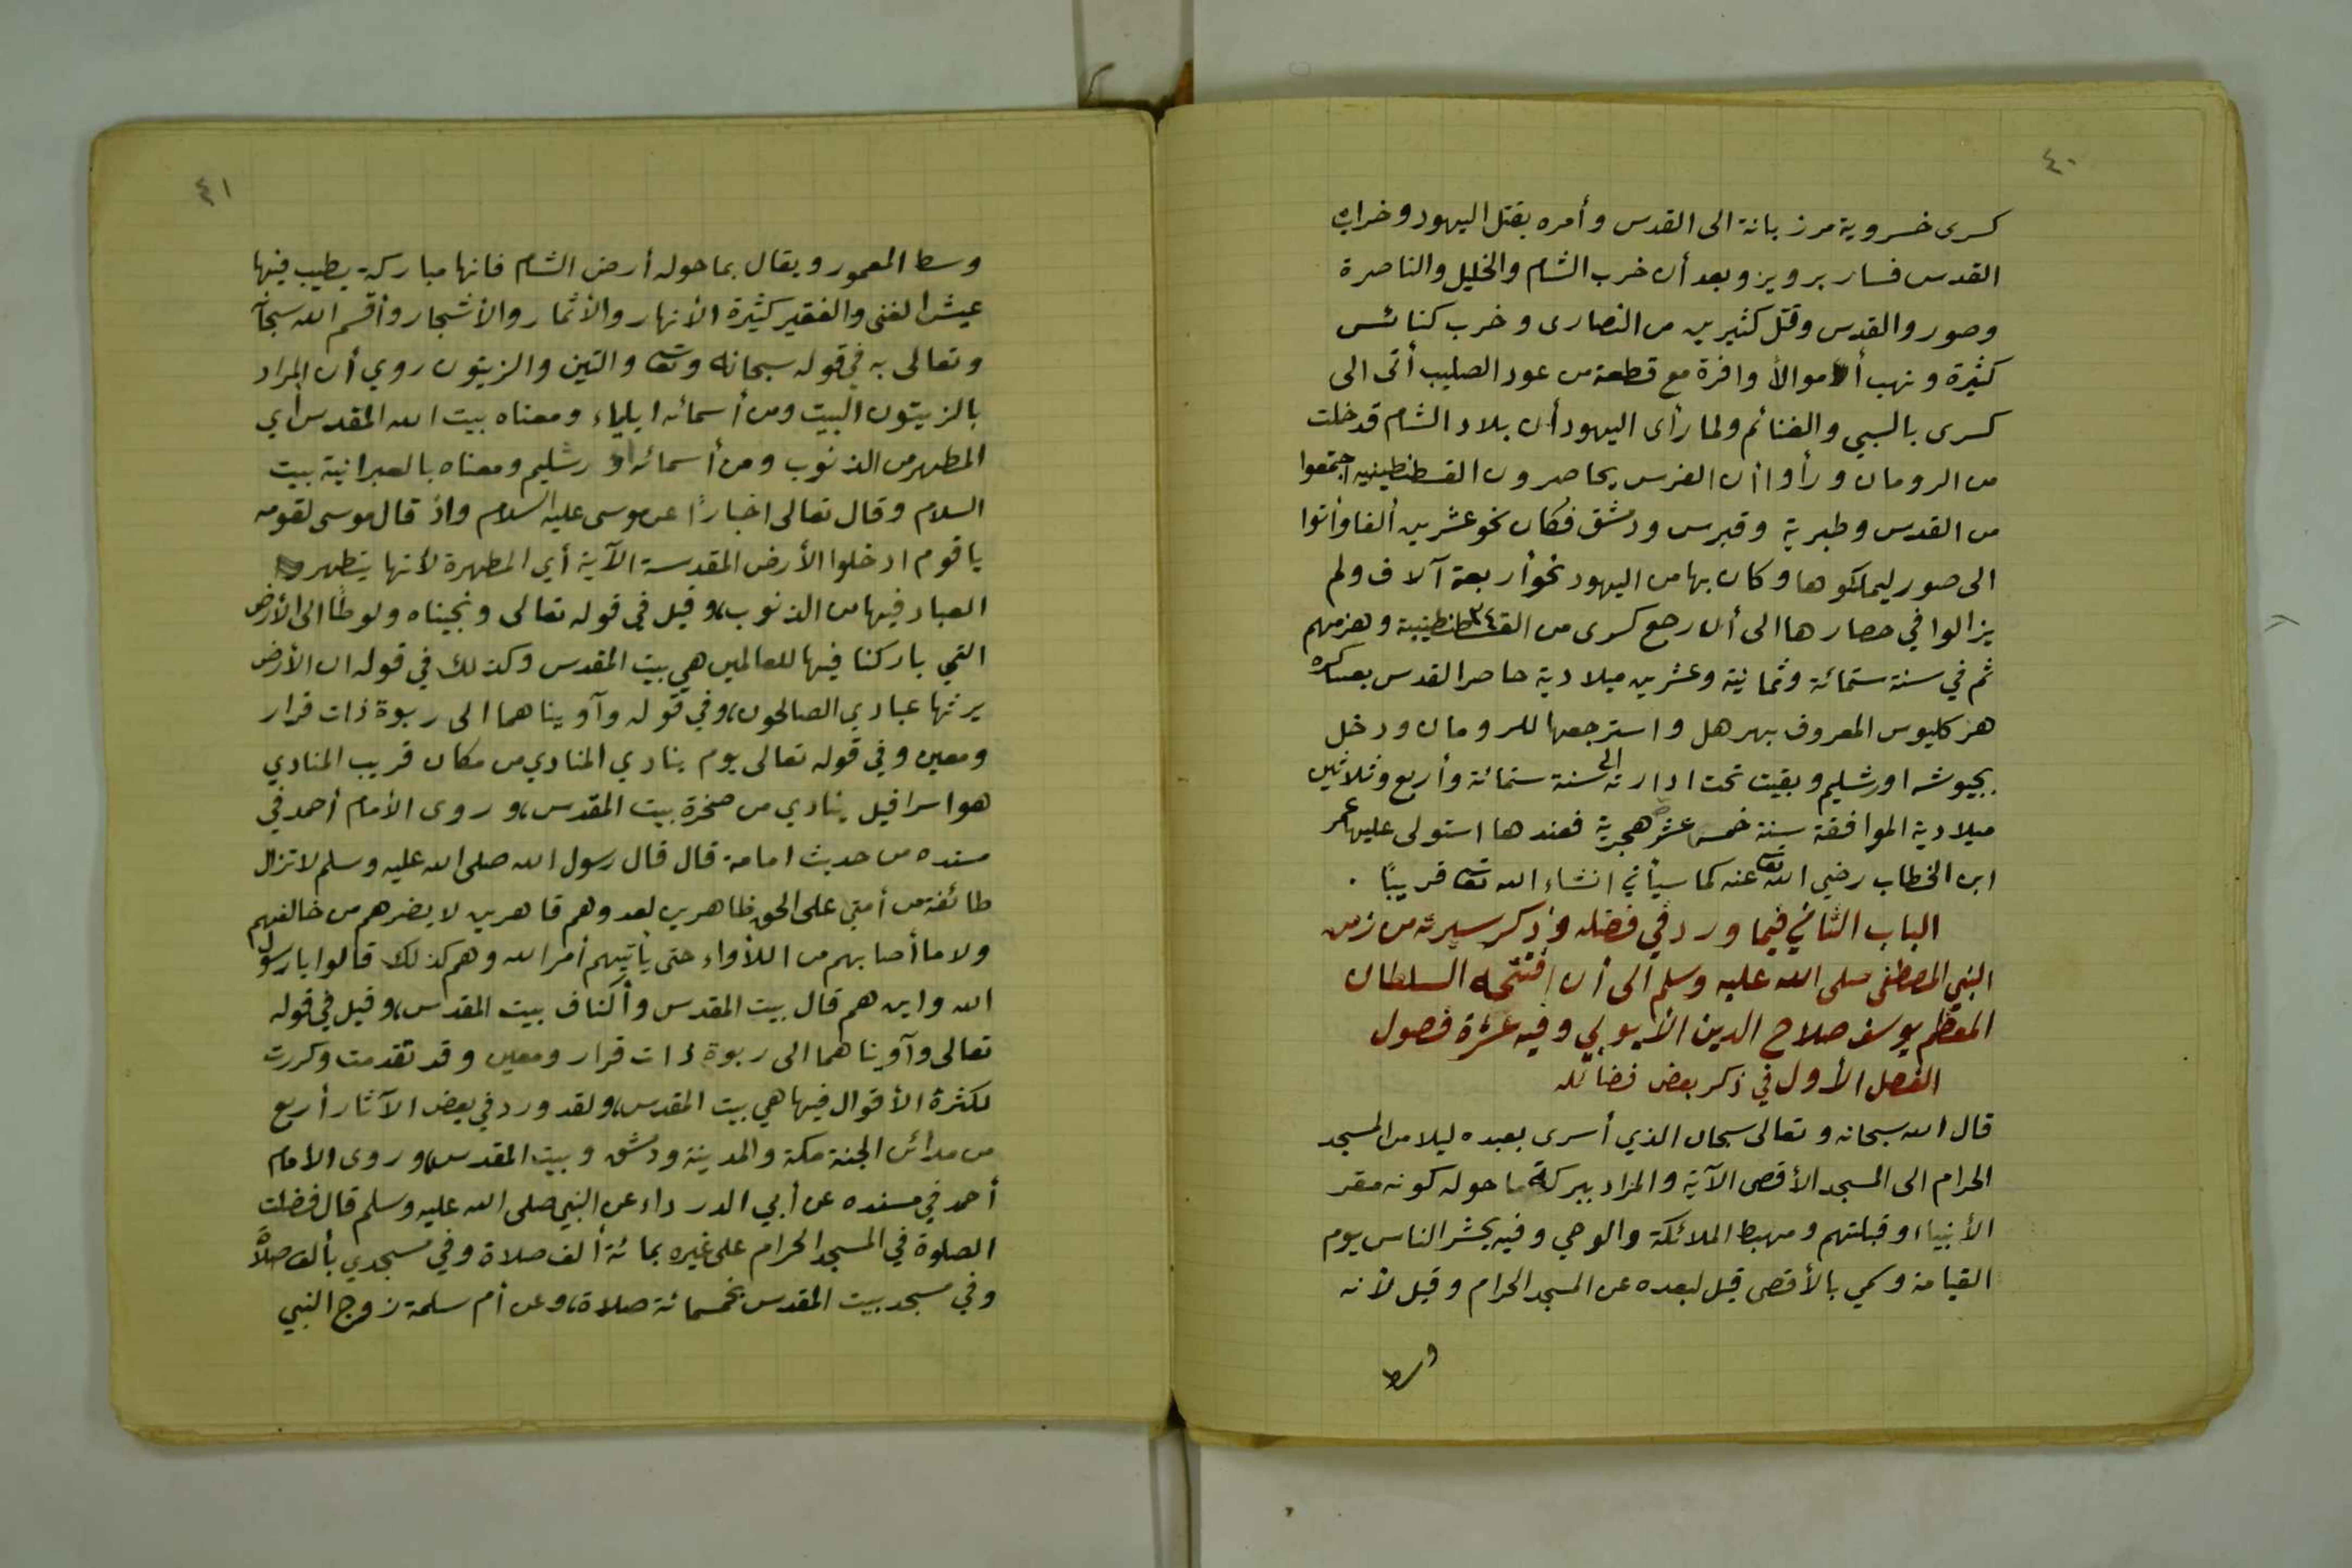 ٤٠
كسرى خسروية مرزبانة الى القدس وأمره بقتل اليهود وخراب
القدس فسار برويز وبعد أن خرب الشام والخليل والناصرة
وصور والقدس وقتل كثيرين من النصارى وخرب كنائس
كثيرة ونهب أموالاً وافرة مع قطعة من عود الصليب أتى الى
كسرى بالسبي والغنائم ولما رأى اليهود أن بلاد الشام قد خلت
من الرومان ورأوا أن الفرس يحاصرون القسطنطينيه اجتمعوا
من القدس وطبرية وقبرس ودمشق فكان نحو عشرين ألفا وأتوا
الى صور ليملكوها وكان بها من اليهود نحو أربعة آلاف ولم
يزالوا في حصارها الى أن رجع كسرى من القسطنطينية وهزمهم
ثم في سنة ستمائة وثمانية وعشرين ميلادية حاصر القدس بعساكره
هركليوس المعروف بهرهل واسترجعها للرومان ودخل
بجيوشه اورشليم وبقيت تحت ادارته الى سنة ستمائة وأربع وثلاثين
ميلادية الموافقة سنة خمس عشر هجرية فعندها استولى عليها عمر
ابن الخطاب رضي الله تعا عنه كما سيأتي انشاء الله تعا قريبًا .
الباب الثاني فيما ورد في فضله وذكر سيرته من زمن
النبي المصطفى صلى الله عليه وسلم الى أن افتتحه السلطان
المعظم يوسف صلاح الدين الأيوبي وفيه عشرة فصول
الفصل الأول في ذكر بعض فضائله
قال الله سبحانه وتعالى سبحان الذي أسرى بعبده ليلا من المسجد
الحرام الى المسجد الأقصى الآية والمراد ببركة ما حوله كونه مقر
الأنبياء وقبلتهم ومهبط الملائكة والوحي وفيه يحشر الناس يوم
القيامة وسمي بالأقصى قيل لبعده عن المسجد الحرام وقيل لأنه
وسط
٤١
وسط المعمور ويقال بما حوله أرض الشام فانها مباركة يطيب فيها
عيش الغنى والفقير كثيرة الأنهار والأثمار والأشجار وأقسم الله سبحانه
وتعالى به في قوله سبحانه وتعا والتين والزيتون روي أن المراد
بالزيتون البيت ومن أسمائه ايلياء ومعناه بيت الله المقدس أي
المطهر من الذنوب ومن أسمائه اورشليم ومعناه بالعبرانية بيت
السلام وقال تعالى اخبارًا عن موسى عليه السلام واذ قال موسى لقومه
يا قوم ادخلوا الأرض المقدسة الآية أي المطهرة لأنها يتطهر
العباد فيها من الذنوب، وقيل في قوله تعالى ونجيناه ولوطًا الى الأرض
التي باركنا فيها للعالمين هي بيت المقدس وكذلك في قوله ان الأرض
يرثها عبادي الصالحون، وفي قوله وآويناهما الى ربوة ذات قرار
ومعين وفي قوله تعالى يوم ينادي المنادي من مكان قريب المنادي
هو اسرافيل ينادي من صخرة بيت المقدس، وروى الأمام أحمد في
مسنده من حديث امامة قال قال رسول الله صلى الله عليه وسلم لا تزال
طائفة من أمتي على الحق ظاهرين لعدوهم قاهرين لا يضرهم من خالفهم
ولا ما أصابهم من اللأواء حتى يأتيهم أمر الله وهم كذلك قالوا يا رسول
الله واين هم قال بيت المقدس وأكناف بيت المقدس، وقيل في قوله
تعالى وآويناهما الى ربوة ذات قرار ومعين وقد تقدمت وكررت
لكثرة الأقوال فيها هي بيت المقدس، ولقد ورد في بعض الآثار أربع
من مدائن الجنة مكة والمدينة ودمشق وبيت المقدس، وروى الأمام
أحمد في مسنده عن أبي الدرداء عن النبي صلى الله عليه وسلم قال فضلت
الصلوة في المسجد الحرام على غيره بمائة ألف صلاة وفي مسجدي بألف صلاة
وفي مسجد بيت المقدس بخمسمائة صلاة، وعن أم سلمة زوج النبي